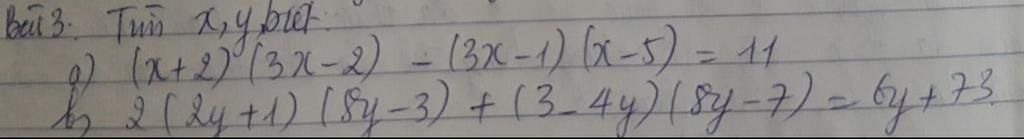 Bài 3. Tìm x, y, biết:
a) (x+2) (3x-2) - (3x-1) (x-5) = 11
b) 2 (2y+1) (8y-3) + (3-4y) (8y-7) = 6y + 73.